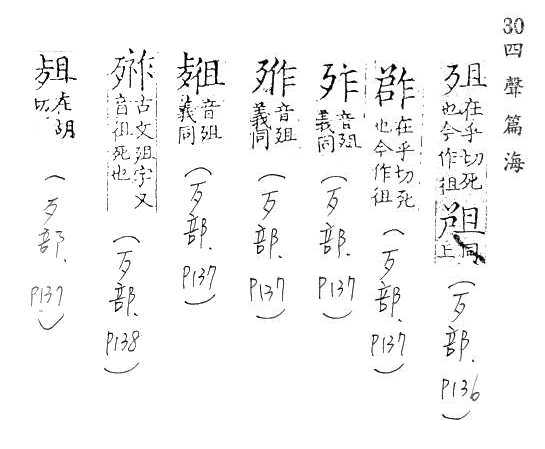 30四聲篇海
殂在乎切死也今作徂同上(歹部.P136)
在乎切死也今作徂(歹部.P137)
音殂義同(歹部.P137)
音殂義同(歹部.P137)
音殂義同(歹部.P137)
古文殂字又音徂死也(歹部.P138)
切(歹部.P137)